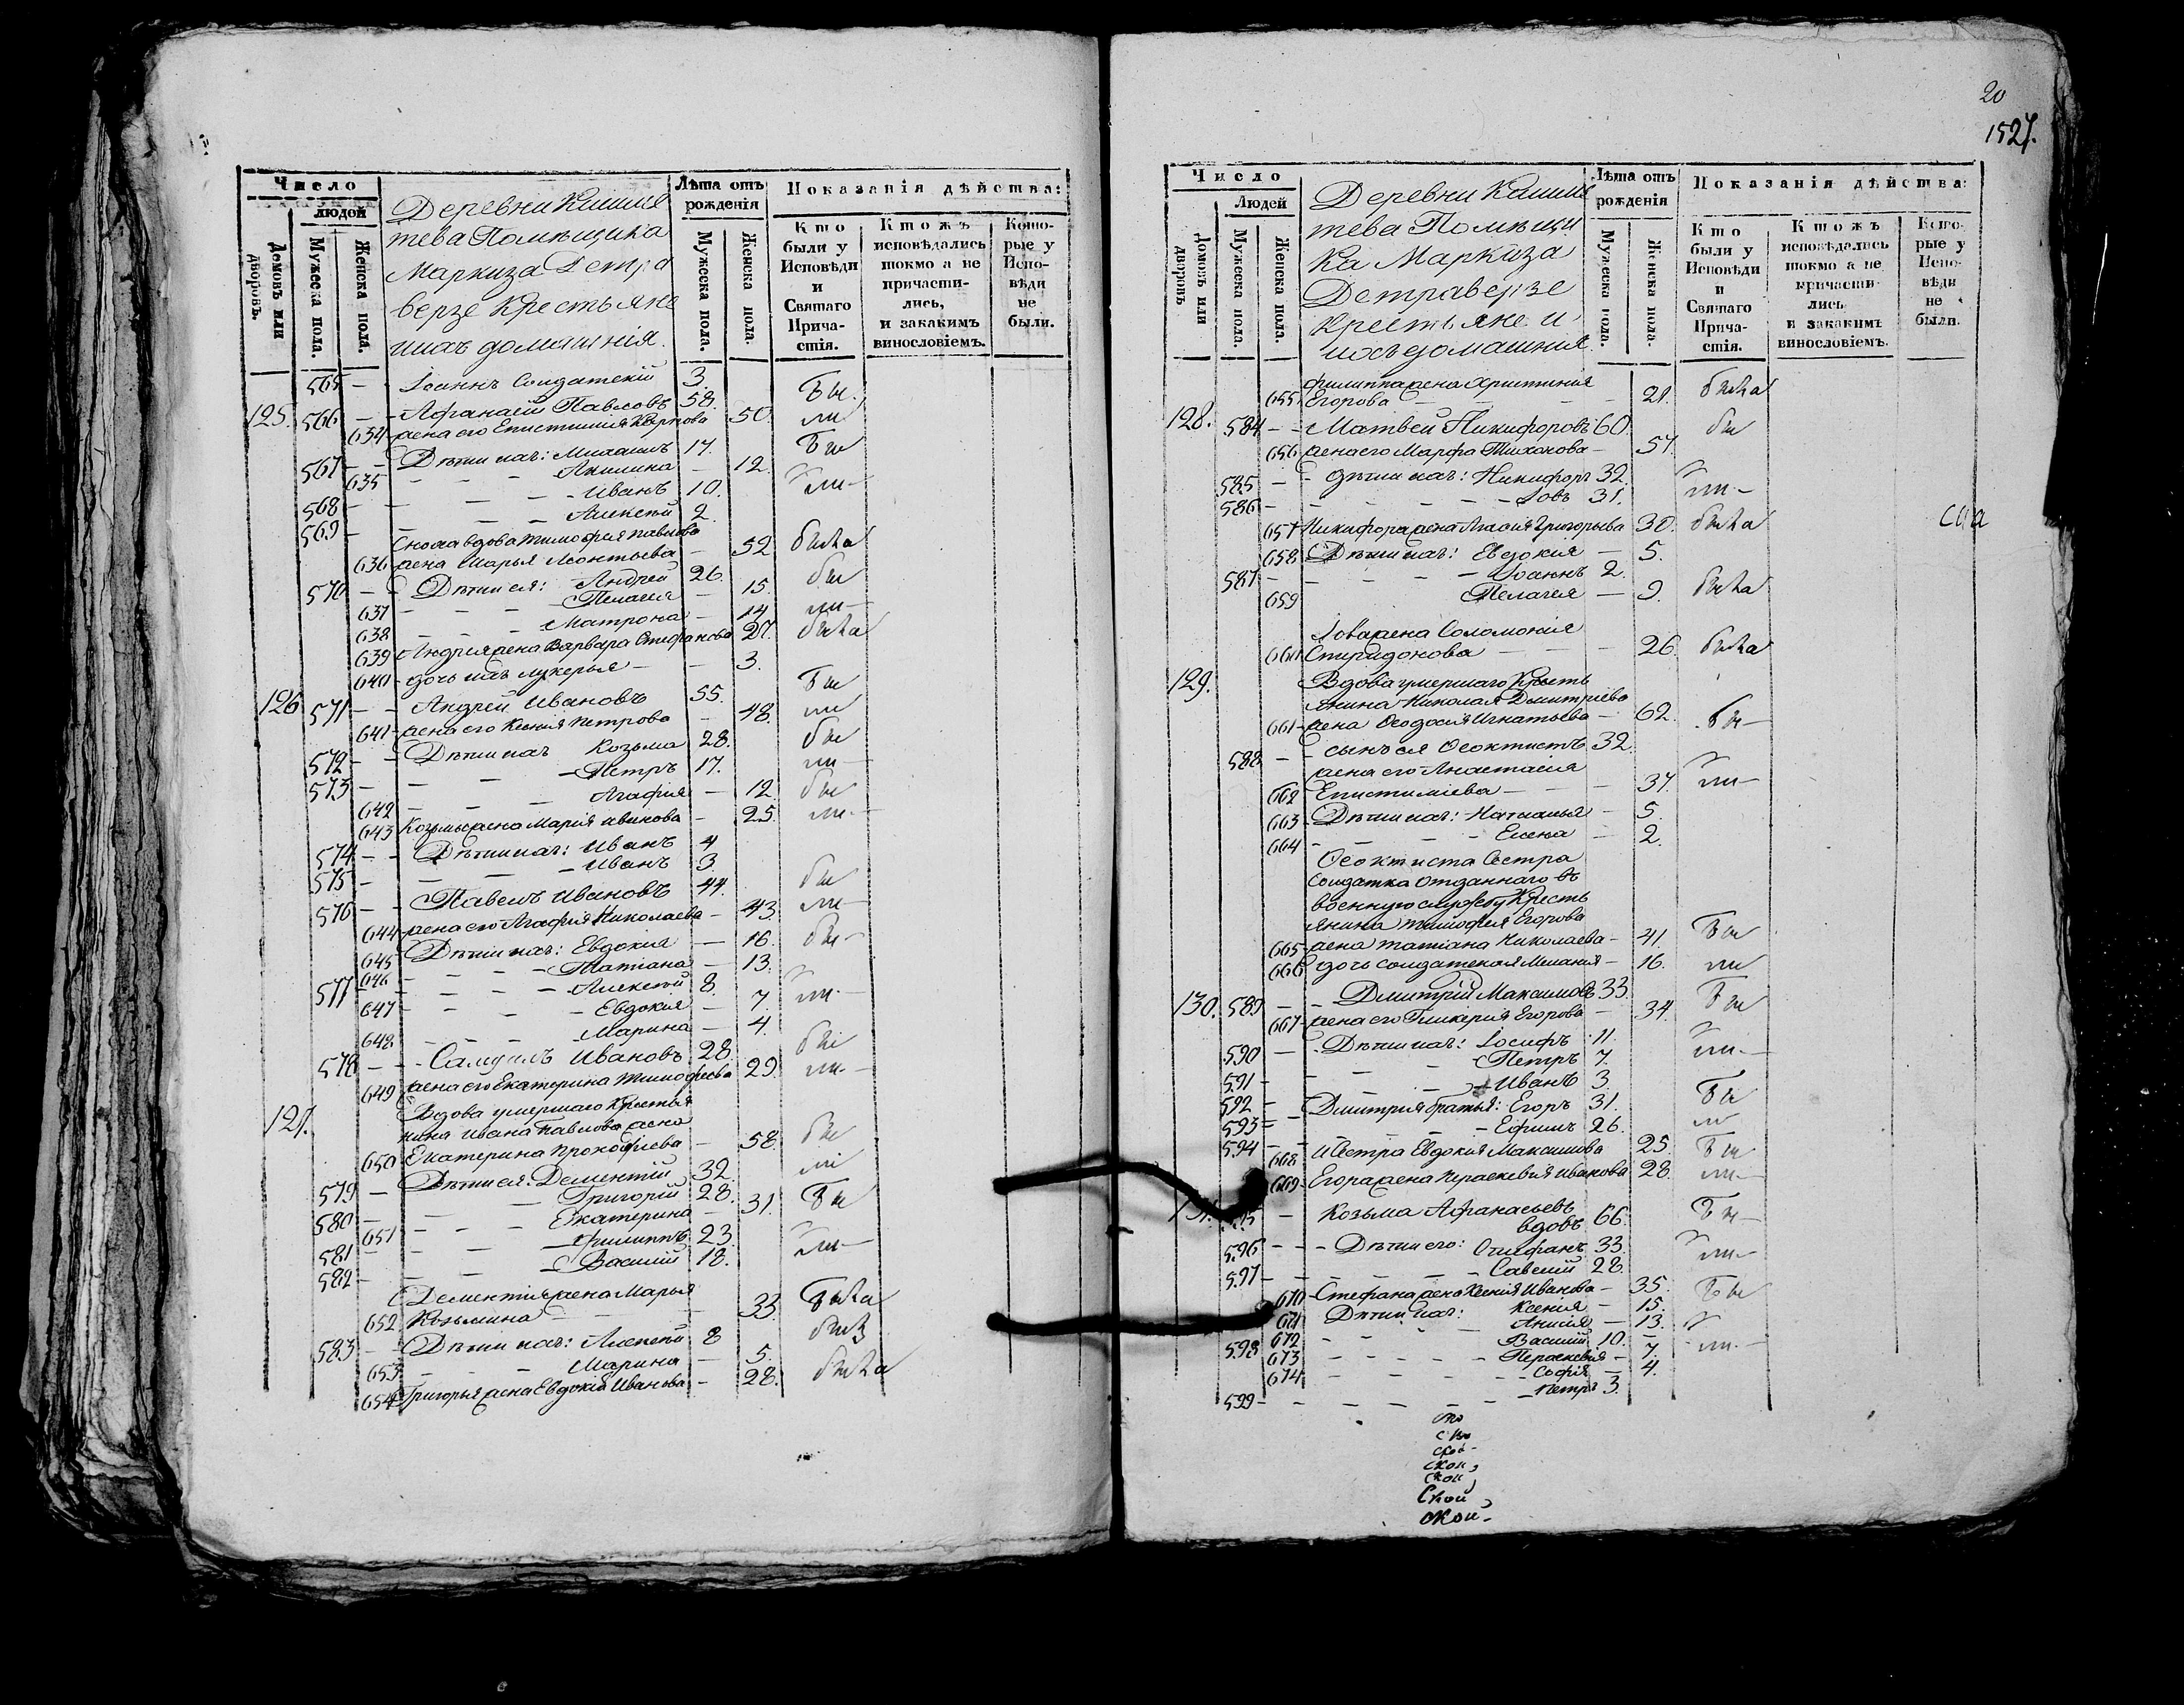 Число
людой
Домовъ или дворовъ.
Мужеска пола.
Женска пола.
Деревни Камши
тева Помѣщика
Маркиза Детра
верзе Крестьяне
ихъ домашнія.
Лѣта отъ рожденія
Мужеска пола.
Женска пола.
Показанія дѣйства:
Кто были у Исповѣди и Святаго Прича-стія.
Ктожъ исповѣдались токмо а не причасти-лись, и закакимъ винословіемъ.
Кото-рые у Испо-вѣди не были.
565 - Іоаннъ Солдатскій 3.
125. 566 - - Афанасій Павловъ 58. Бы
634 жена его Епистимія Карпова 50. ли
567 - - Дѣти ихъ: Михаилъ 17. Бы
635 - - - Акилина - 12.
568 - - - Иванъ 10. ли
569 - - - Алексѣй 2.
Сноха вдова Тимофея Павлова
636 жена Марья Леонтьева - 52 была
570 - Дѣти ея: Андрей 26. бы
637 - - - Пелагея - 15.
638 - - - Матрона - 14 ли
639 Андрея жена Варвара Стефанова 27. была
640 - дочь ихъ Лукерья - - 3.
126 571 - - Андрей Ивановъ 55. Бы
641 - жена его Ксенія Петрова - 48. ли
572 - - Дѣти ихъ Козьма 28. бы
573 - - - Петръ 17. ли
642 - - - Агафия - 12. бы
643 Козьмы жена Марія Иванова - 25. ли
574 - - Дѣти ихъ: Иванъ 4
575 - - - Иванъ 3.
576 - - Павелъ Ивановъ 44. бы
644 жена его Агафия Николаева - 43 ли
645 Дѣти ихъ: Евдокия - 16. бы
646 - - - Татіана - 13.
577 - - - Алексѣй 8.
647 - - - Евдокия - 7. ли
648 - - - Марина - 4.
578 - - Самуилъ Ивановъ 28. бы
649 жена его Екатерина Тимофеева 29. ли
127. Вдова умершаго Крестья
нина Ивана Павлова жена
650 Екатерина Прокофиева - 58. бы
579 - Дѣти ея: Дементій 32. ли
580 - - - Григорій 28.
651 - - - Екатерина - 31. Бы
581 - - - Филиппъ 23.
582 - - - Василій 18. ли
Дементія жена Марья
652 Козьмина - - - 33. Была
583 - - Дѣти ихъ: Алексѣй 8
653 - - - Марина - 5.
654 Григорья жена Евдокія Иванова - 28. была
20
1527.
Число
Людей
Домовъ или дворовъ
Мужеска пола.
Женска пола.
Деревни Камши
тева Помѣщи
ка Маркиза
Детраверзе
Крестьяне и
ихъ домашния
Лѣта отъ рожденія
Мужеска пола.
Женска пола.
Показанія дѣйства:
Кто были у Исповѣди и Святаго Прича-стія.
Ктожъ исповѣдались токмо а не причасти-лись и закакимъ винословіемъ.
Кото-рые у Испо-вѣди не были.
Филиппа жена Христиния
655 Егорова - - - 21. была
128. 584 - - Матвей Никифоровъ 60. бы
656 жена его Марфа Тихонова - 57.
585 - - Дѣти ихъ: Никифоръ 32.
586 - - - Іовъ 31. ли
657 Никифора жена Агафия Григорьева 30. была
658 Дѣти ихъ: Евдокия - 5.
587 - - - Іоаннъ 2.
659 Пелагея - 9. была
Іова жена Соломонія
660 Спиридонова - - - 26. была
129. Вдова умершаго Кресть
янина Николая Дмитриева
661 - жена Феодосия Игнатьева - 62. Бы
588 - - сынъ ея Феоктистъ 32.
жена его Анастасия
662 Епистимиева - - - 37. ли
663 - Дѣти ихъ: Наталья - 5.
664 - - - Елена - 2.
Феоктиста Сестра
солдатка отданнаго въ
военную службу Кресть
янина Тимофея Егорова
665 - жена Татіана Николаева - 41. Бы
666 дочь солдатская Меланія - 16. ли
130. 589 - - Дмитрій Максимовъ 33. Бы
667 - жена его Гликерия Егорова - 34.
590 - - Дѣти ихъ: Іосифъ 11.
591 - - - Петръ 7. ли
592 - - - Иванъ 3.
593 - Дмитрия братья: Егоръ 31. Бы
594 - - - Ефимъ 26. ли
668 и Сестра Евдокия Максимова 25. Бы
669 - Егора жена Параскевия Иванова 28. ли
Козьма Афанасьевъ
вдовъ 66. Бы
596 - - - Дѣти его: Стефанъ 33.
597 - - - Савелий 28. ли
670 - Стефана жена Ксения Иванова - 35. Бы
671 Дѣти ихъ: Ксения - 15.
672 - - - Анисия - 13.
598 - - - Василий 10. - ли
673 - - - Параскевия - 7.
674 - - - София - 4.
599 - - - Петръ 3.
скои
скои
Скои